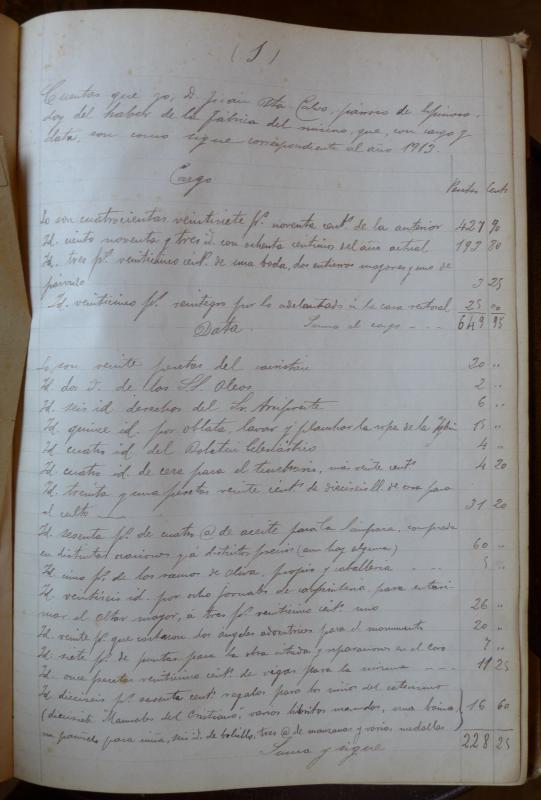 (1)
Cuentas que yo, D. Julián Sta. Calvo, párroco de
doy del haber de la fábrica del mismo, que, con cargo y
data, son como sigue correspondiente al año 1913.
Cargo
Pesetas Cents
Lo son cuatrocientas veintisiete pts. noventa cents. de la anterior 427 90
Id. ciento noventa y tres id. con ochenta céntimos del año actual 193 80
Id. tres pts. veinticinco cents. de una boda, dos entierros mayores y uno de
párvulo 3 25
Id. veinticinco pts. reintegro por lo adelantado a la casa rectoral 25 00
Data. Suma el cargo - - - 649 95
Lo son veinte pesetas del 20 "
Id. dos id. de los S.S. Oleos 2 "
Id. seis id. derechos del Sr. Arcipreste 6 "
Id. quince id. por oblata, lavar y planchar la ropa de la Iglesia 15 "
Id. cuatro id. del Boletín Eclesiástico 4 "
Id. cuatro id. de cera para el tenebrario, más veinte cents. 4 20
Id. treinta y una pesetas veinte cents. de de cera para
el culto 31 20
Id. sesenta pts. de cuatro @ de aceite para la lámpara, comprada
en distintas ocasiones y á distintos precios (aun hay alguna) 60 "
Id. cinco pts. de los ramos de oliva, propio y caballería 5 "
Id. veintiséis id. por ocho jornales de carpintería, para entari-
mar el altar mayor, á tres pts. veinticinco cents. uno 26 "
Id. veinte pts. que costaron dos ángeles adoratrices para el monumento 20 "
Id. siete pts. de puntas para la obra citada y reparaciones en el coro 7 "
Id. once pesetas veinticinco cents. de vigas para la misma - - - 11 25
Id. dieciséis pts. sesenta cents. regalos para los niños del catecismo
(diecisiete "Manuales del Cristiano", varios libritos menudos, una boina, 16 60
un pañuelo para niña, seis id. de bolsillo, tres @ de manzanas y varias medallas
Suma y sigue 228 25